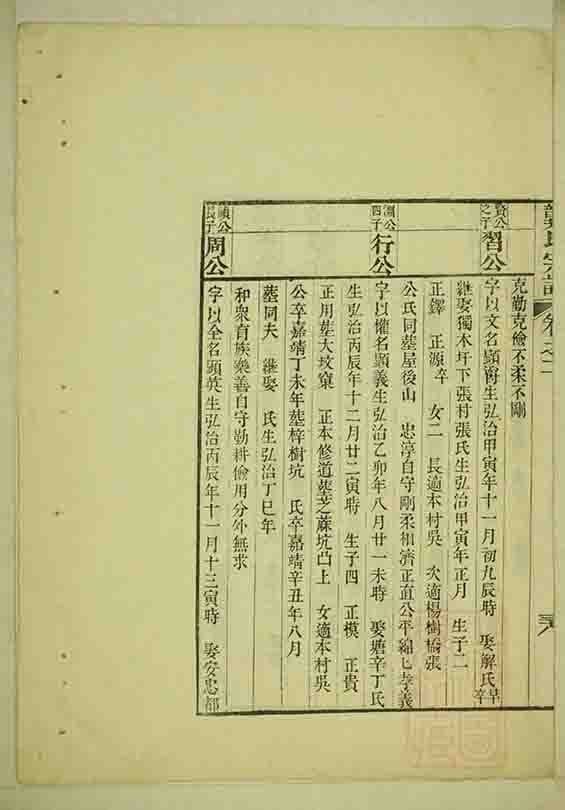 氏宗譜 卷之二
克勤克儉不柔不剛
賢公之子
習公
字以文名顯 生弘治甲寅年十一月初九辰時 娶解氏早卒
繼娶獨木圩下張村張氏生弘治甲寅年正月 生子二
正鐸 正源卒 女二 長適本村吳 次適楊樹橋張
公氏同墓屋後山 忠淳自守剛柔相濟正直公平綿匕孝義
公四子
行公
字以權名顯義生弘治乙卯年八月廿一未時 娶塘辛丁氏
生弘治丙辰年十二月廿二寅時 生子四 正模 正貴
正用葬大坟窠 正本修道葬芝蔴坑凸上 女適本村吳
公卒嘉靖丁未年墓梓樹坑 氏卒嘉靖辛丑年八月
墓同夫 繼娶 氏生弘治丁巳年
和衆育族樂善自守勤耕儉用分外無求
公長子
周公
字以全名顯英生弘治丙辰年十一月十三寅時 娶安忠都